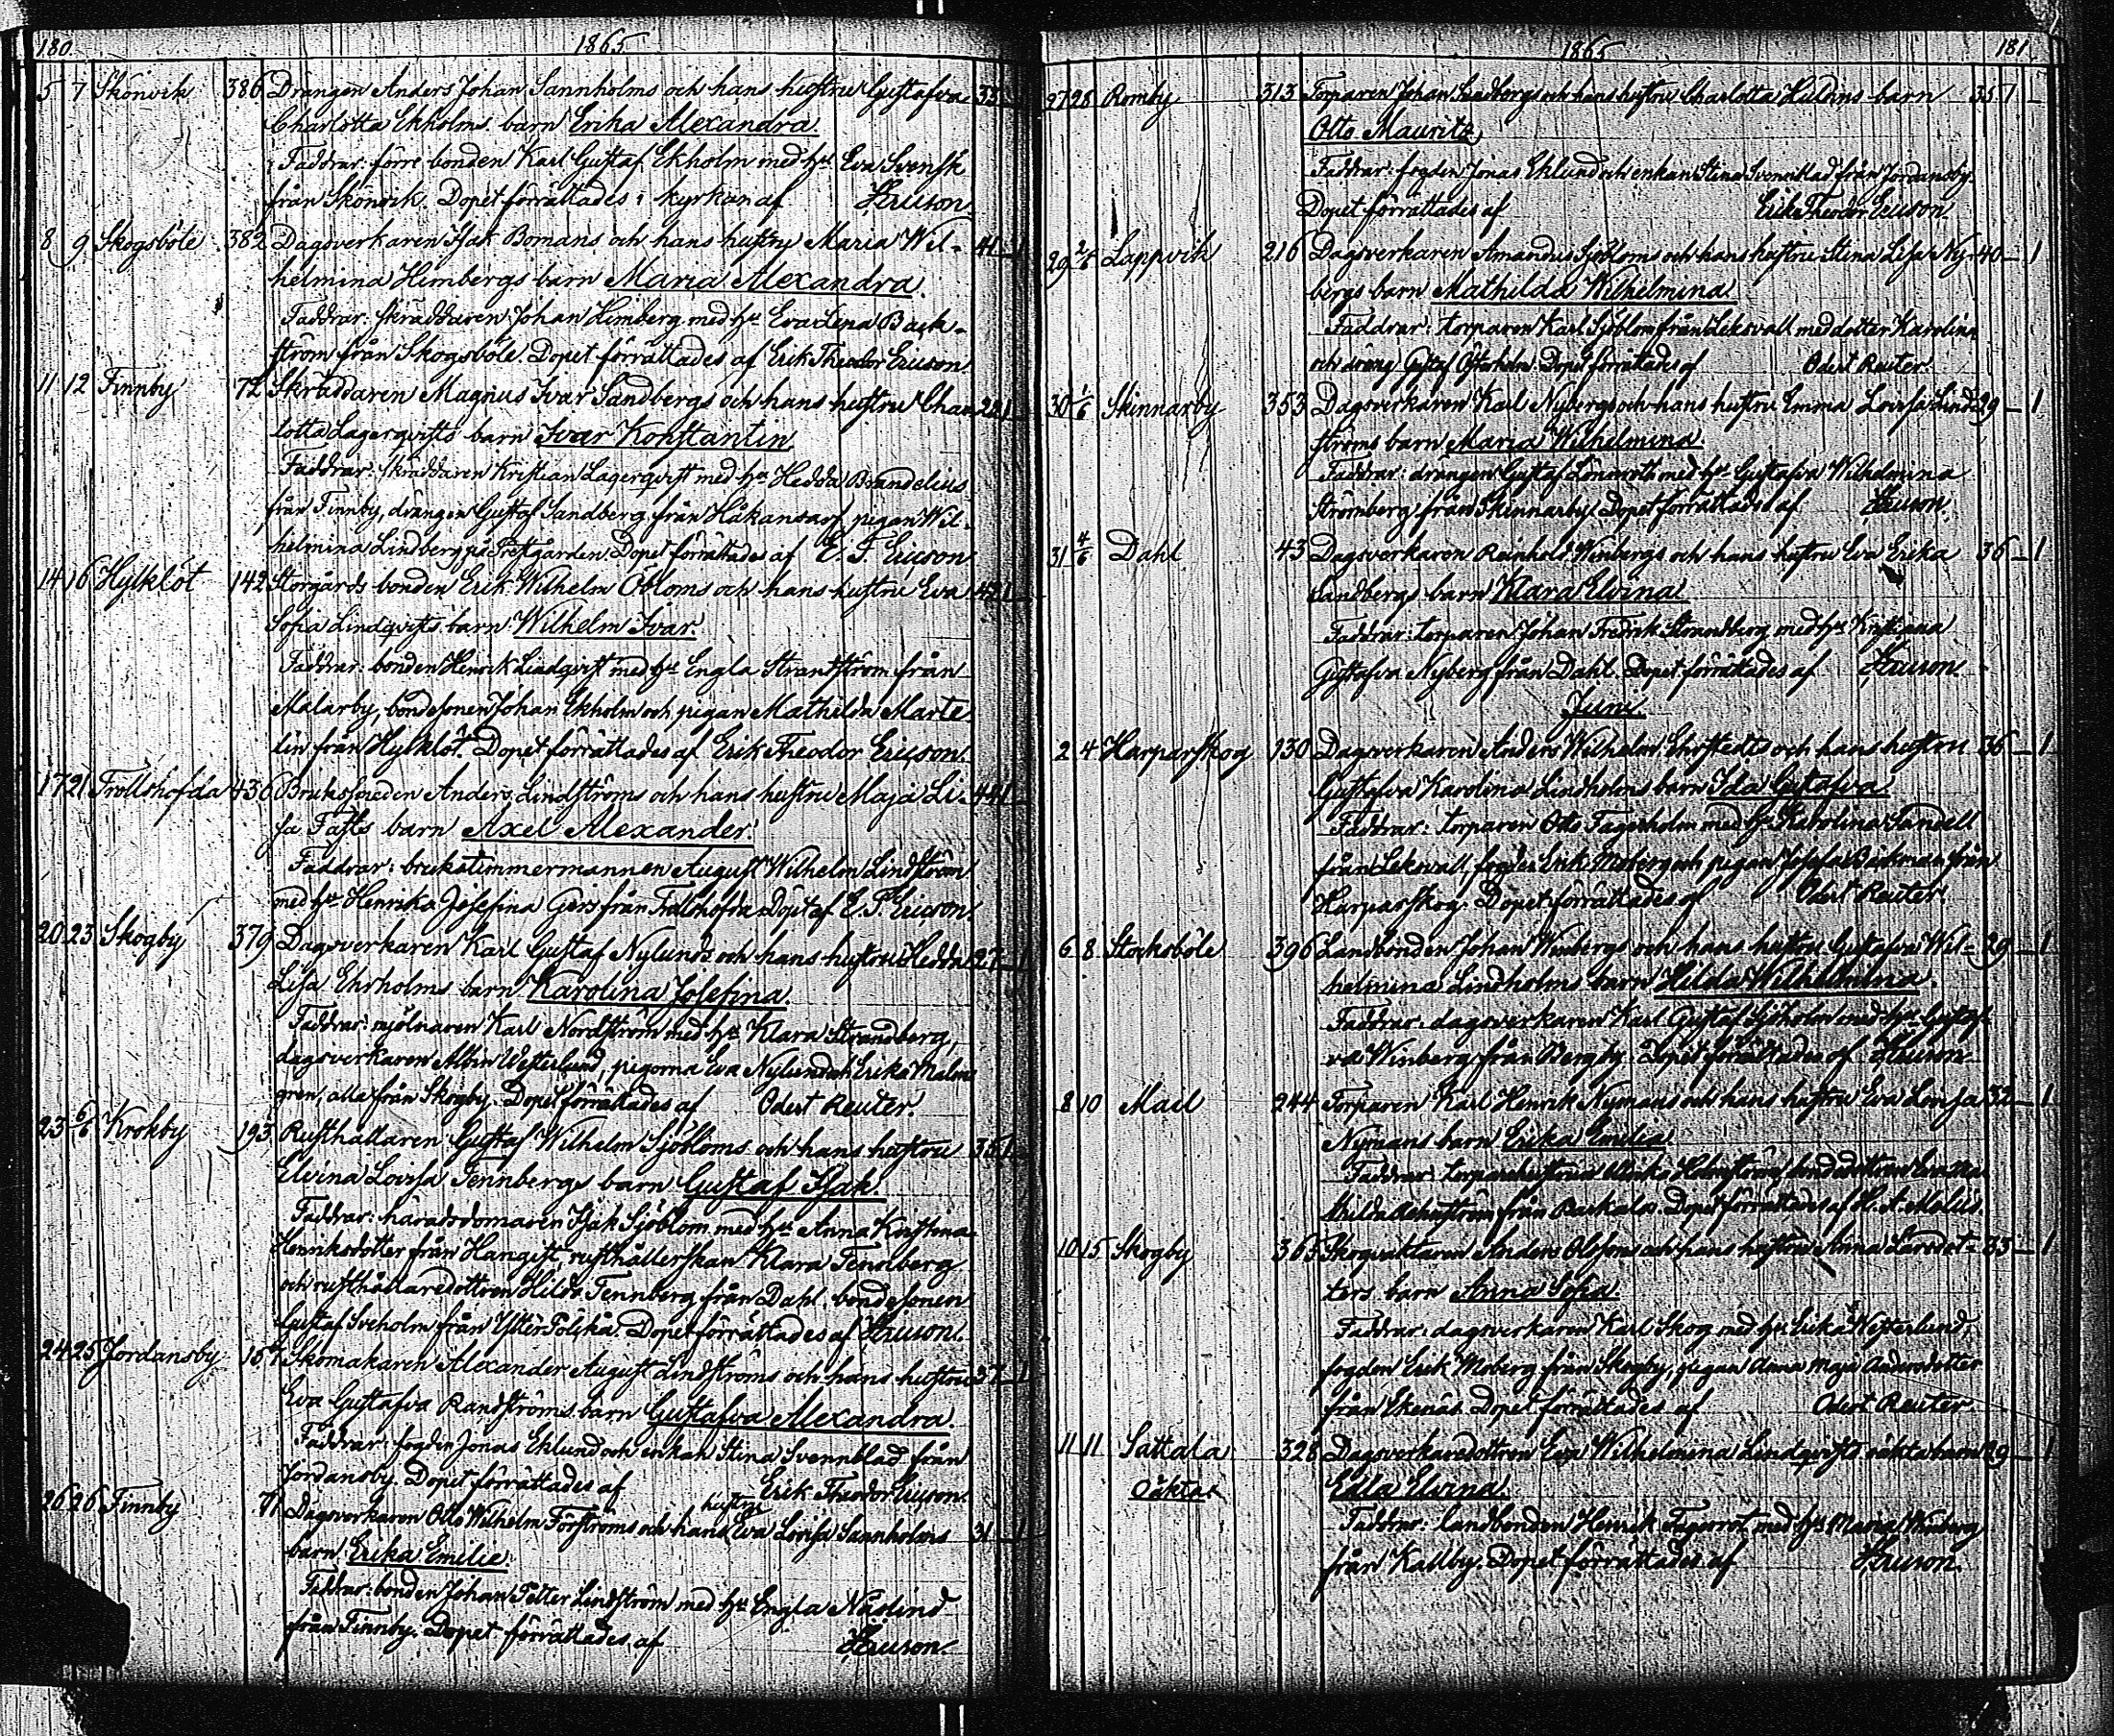 180. 1865
5 7 Skönvik 386 Drängen Anders Johan Sannholms och hans hustru Gustafva 33
Charlotta Ekholms barn Erika Alexandra.
Faddrar: förre bonden Karl Gustaf Ekholm med hu Eva Svensk
från Skönvik. Dopet förrättades i kyrkan af Ericson.
8 9 Skogsböle 382 Dagsverkaren Isak Bomans och hans hustru Maria Wil- 41 1
helmina Himbergs barn Maria Alexandra.
Faddrar: skräddaren Johan Himberg med hu Eva Lena Back-
ström från Skogsböle. Dopet förrättades af Erik Theodor Ericson.
11 12 Finnby 72 Skräddaren Magnus Ivar Sandbergs och hans hustru Char- 28 1
lotta Lagerqvists barn Ivar Konstantin
Faddrar: skräddaren Kristian Lagerqvist med hu Hedda Brandelius
från Finnby, drängen Gustaf Sandberg från Håkansarf, pigan Wil-
helmina Lindberg på Prestgården. Dopet förrättades af E. T. Ericson
14 16 Hylklöt 142 Storgårds bonden Erik Wilhelm Öbloms och hans hustru Eva 42 1
Sofia Lindqvists barn Wilhelm Ivar.
Faddrar: bonden Henrik Lindqvist med hu Engla Strandström från
Malarby, bondesonen Johan Ekholm och pigan Mathilda Marte-
lin från Hylklöt. Dopet förrättades af Erik Theodor Ericson.
17 21 Trollshofda 436 Brukssmeden Anders Lindströms och hans hustru Maja Li- 44 1
sa Fasts barn Axel Alexander.
Faddrar: brukstimmermannen August Wilhelm Lindström
med hu Henrika Josefina Gers från Trollshofda. Dopet af E. T. Ericson.
20 23 Skogby 379 Dagsverkaren Karl Gustaf Nylunds och hans hustru Hedda 27 1
Lisa Ehrholms barn Karolina Josefina.
Faddrar: mjölnaren Karl Nordström med hu Klara Strandberg,
dagsverkaren Albin Westerlund, pigorna Eva Nylund och Erika Malm-
gren, alla från Skogby. Dopet förrättades af Odert Reuter.
23 6/6 Krokby 193 Rusthållaren Gustaf Wilhelm Sjöbloms och hans hustru 35 1
Elvina Lovisa Tennbergs barn Gustaf Isak.
Faddrar: häradsdomaren Isak Sjöblom med hu Anna Kristina
Henriksdotter från Hangist, rusthållerskan Klara Tennberg
och rusthållaredottren Hilda Tennberg från Dahl, bondesonen
Gustaf Sveholm från Ytter Tölska. Dopet förrättades af Ericson.
24 25 Jordansby 157 Skomakaren Alexander August Lindströms och hans hustru 37 1
Eva Gustafva Randströms barn Gustafva Alexandra.
Faddrar: fogden Jonas Eklund och enkan Stina Svennblad från
Jordansby. Dopet förrättades af Erik Theodor Ericson.
26 26 Finnby 71 Dagsverkaren Otto Wilhelm Forströms och hans hustru Eva Lovisa Sannholms 31 1
barn Erika Emilie.
Faddrar: bonden Johan Petter Lindström med hu Engla Näslind
från Finnby. Dopet förrättades af Ericson.
1865 181
27 28 Romby 313 Torparen Johan Sandbergs och hans hustru Charlotta barn 35 1
Otto Mauritz
Faddrar: fogden Jonas Eklund och enkan Stina Svennblad från Jordansby.
Dopet förrättades af Erik Theodor Ericson.
29 2/6 Lappvik 216 Dagsverkaren Amandus Sjöbloms och hans hustru Stina Lisa Ny- 40 1
bergs barn Mathilda Wilhelmina
Faddrar: torparen Karl Sjöblom från Leksvall med dotter Karolina
och dräng Gustaf Österholm. Dopet förrättades af Odert Reuter.
30 1/6 Skinnarby 353 Dagsverkaren Karl Nybergs och hans hustru Emma Lovisa Lind- 29 1
ströms barn Maria Wilhelmina.
Faddrar: drängen Gustaf Lönnroth med hu Gustafva Wilhelmina
Strömberg från Skinnarby. Dopet förrättades af Ericson.
31 4/6 Dahl 43 Dagsverkaren Reinhold Winbergs och hans hustru Eva Erika 36 1
Sandbergs barn Klara Elvina
Faddrar: torparen Johan Fredrik Strandberg med hu Kristiana
Gustafva Nyberg från Dahl. Dopet förrättades af Ericson.
Juni.
2 4 Harparskog 130 Dagsverkaren Anders Wilhelm Ehrstedts och hans hustru 36 1
Gustafva Karolina Lindholms barn Ida Gustafva.
Faddrar: torparen Otto Fagerholm med hu Karolina Sandell
från Leksvall, fogden Erik Moberg och pigan Josefa Bäckman från
Harparskog. Dopet förrättades af Odert Reuter.
6 8 Stocksböle 396 Landbonden Johan Winbergs och hans hustru Gustafva Wil- 29 1
helmina Lindholms barn Hilda Wilhelmina.
Faddrar: dagsverkaren Karl Gustaf Sjöholm med hu Gustaf-
va Winberg från Bergby. Dopet förrättades af Ericson
8 10 Mael 244 Torparen Karl Henrik Nymans och hans hustru Eva Lovisa 32 1
Nymans barn Erika Emilia
Faddrar: torparehustrun Ulrika Holmström, bondedottren Eva Ma-
thilda från Backalos. Dopet förrättades af
10 15 Skogby 365 Skogvaktaren Anders Olofsons och hans hustru Anna Larsdot- 33 1
ters barn Anna Sofia.
Faddrar: dagsverkaren Karl Skog med hu Erika Westerlund,
fogden Erik Moberg från Skogby, pigan Anna Maja Andersdotter
från Ekenäs. Dopet förrättades af Odert Reuter
11 11 Sattala 328 Dagsverkaredottren Eva Wilhelmina Lindqvists oäkta barn 29 1
Oäkta Edla Elvina.
Faddrar: landbonden Henrik Fagerrot med hu Maria Winberg
från Kallby. Dopet förrättades af Ericson.